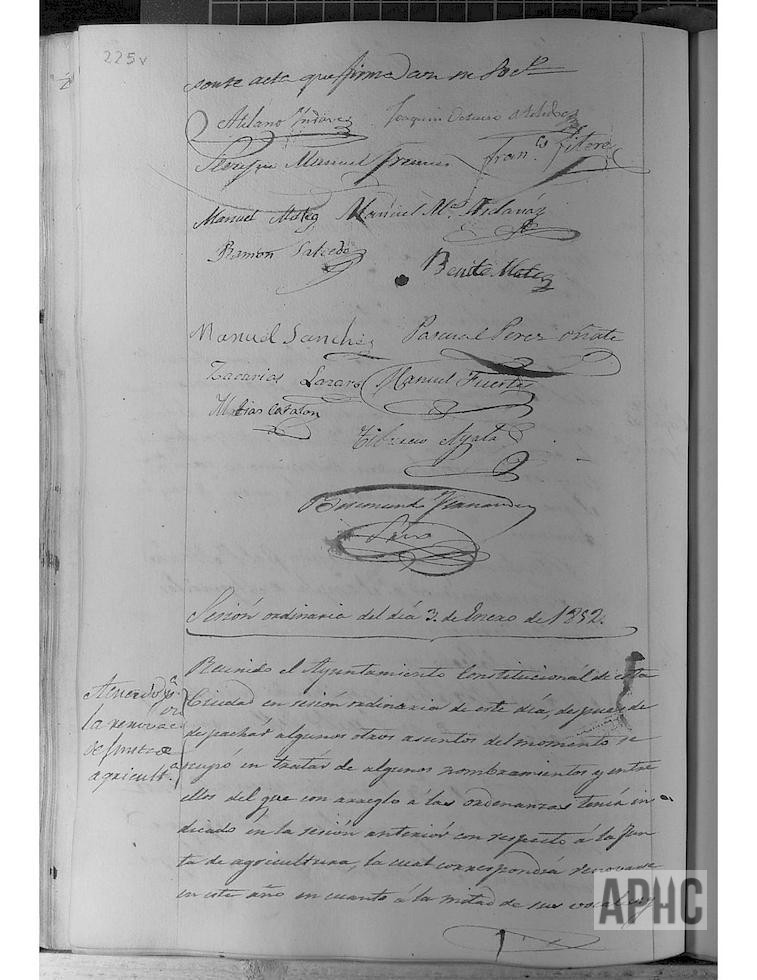 225v
son este acta que firmaron su Secr.º
Atilano Joaquin
Manuel Fran.co Fitero
Manuel Mateo Manuel M.ª Ardanaz
Ramón Salcedo
Benito Mateo
Manuel Sanchez Pascual Perez Oñate
Zacarias Lazaro Manuel Fuertes
Matias Catalan
Tiburcio Ayala
Rosemundo Fernandez
Srio
Sesión ordinaria del día 3. de Enero de 1852.
Acuerdo p.ª
la renovac.
de Junta de
agricult.ª
Reunido el Ayuntamiento Constitucional de esta
Ciudad en sesión ordinaria de este día, despues de
despachár algunos otros asuntos del momento se
ocupó en tratár de algunos nombramientos y entre
ellos del que con arreglo á las ordenanzas tenía in-
dicado en la sesión anteriór con respecto á la Jun-
ta de agricultura, la cual correspondía renovarse
en este año en cuanto á la mitad de sus vocales, y
APHC